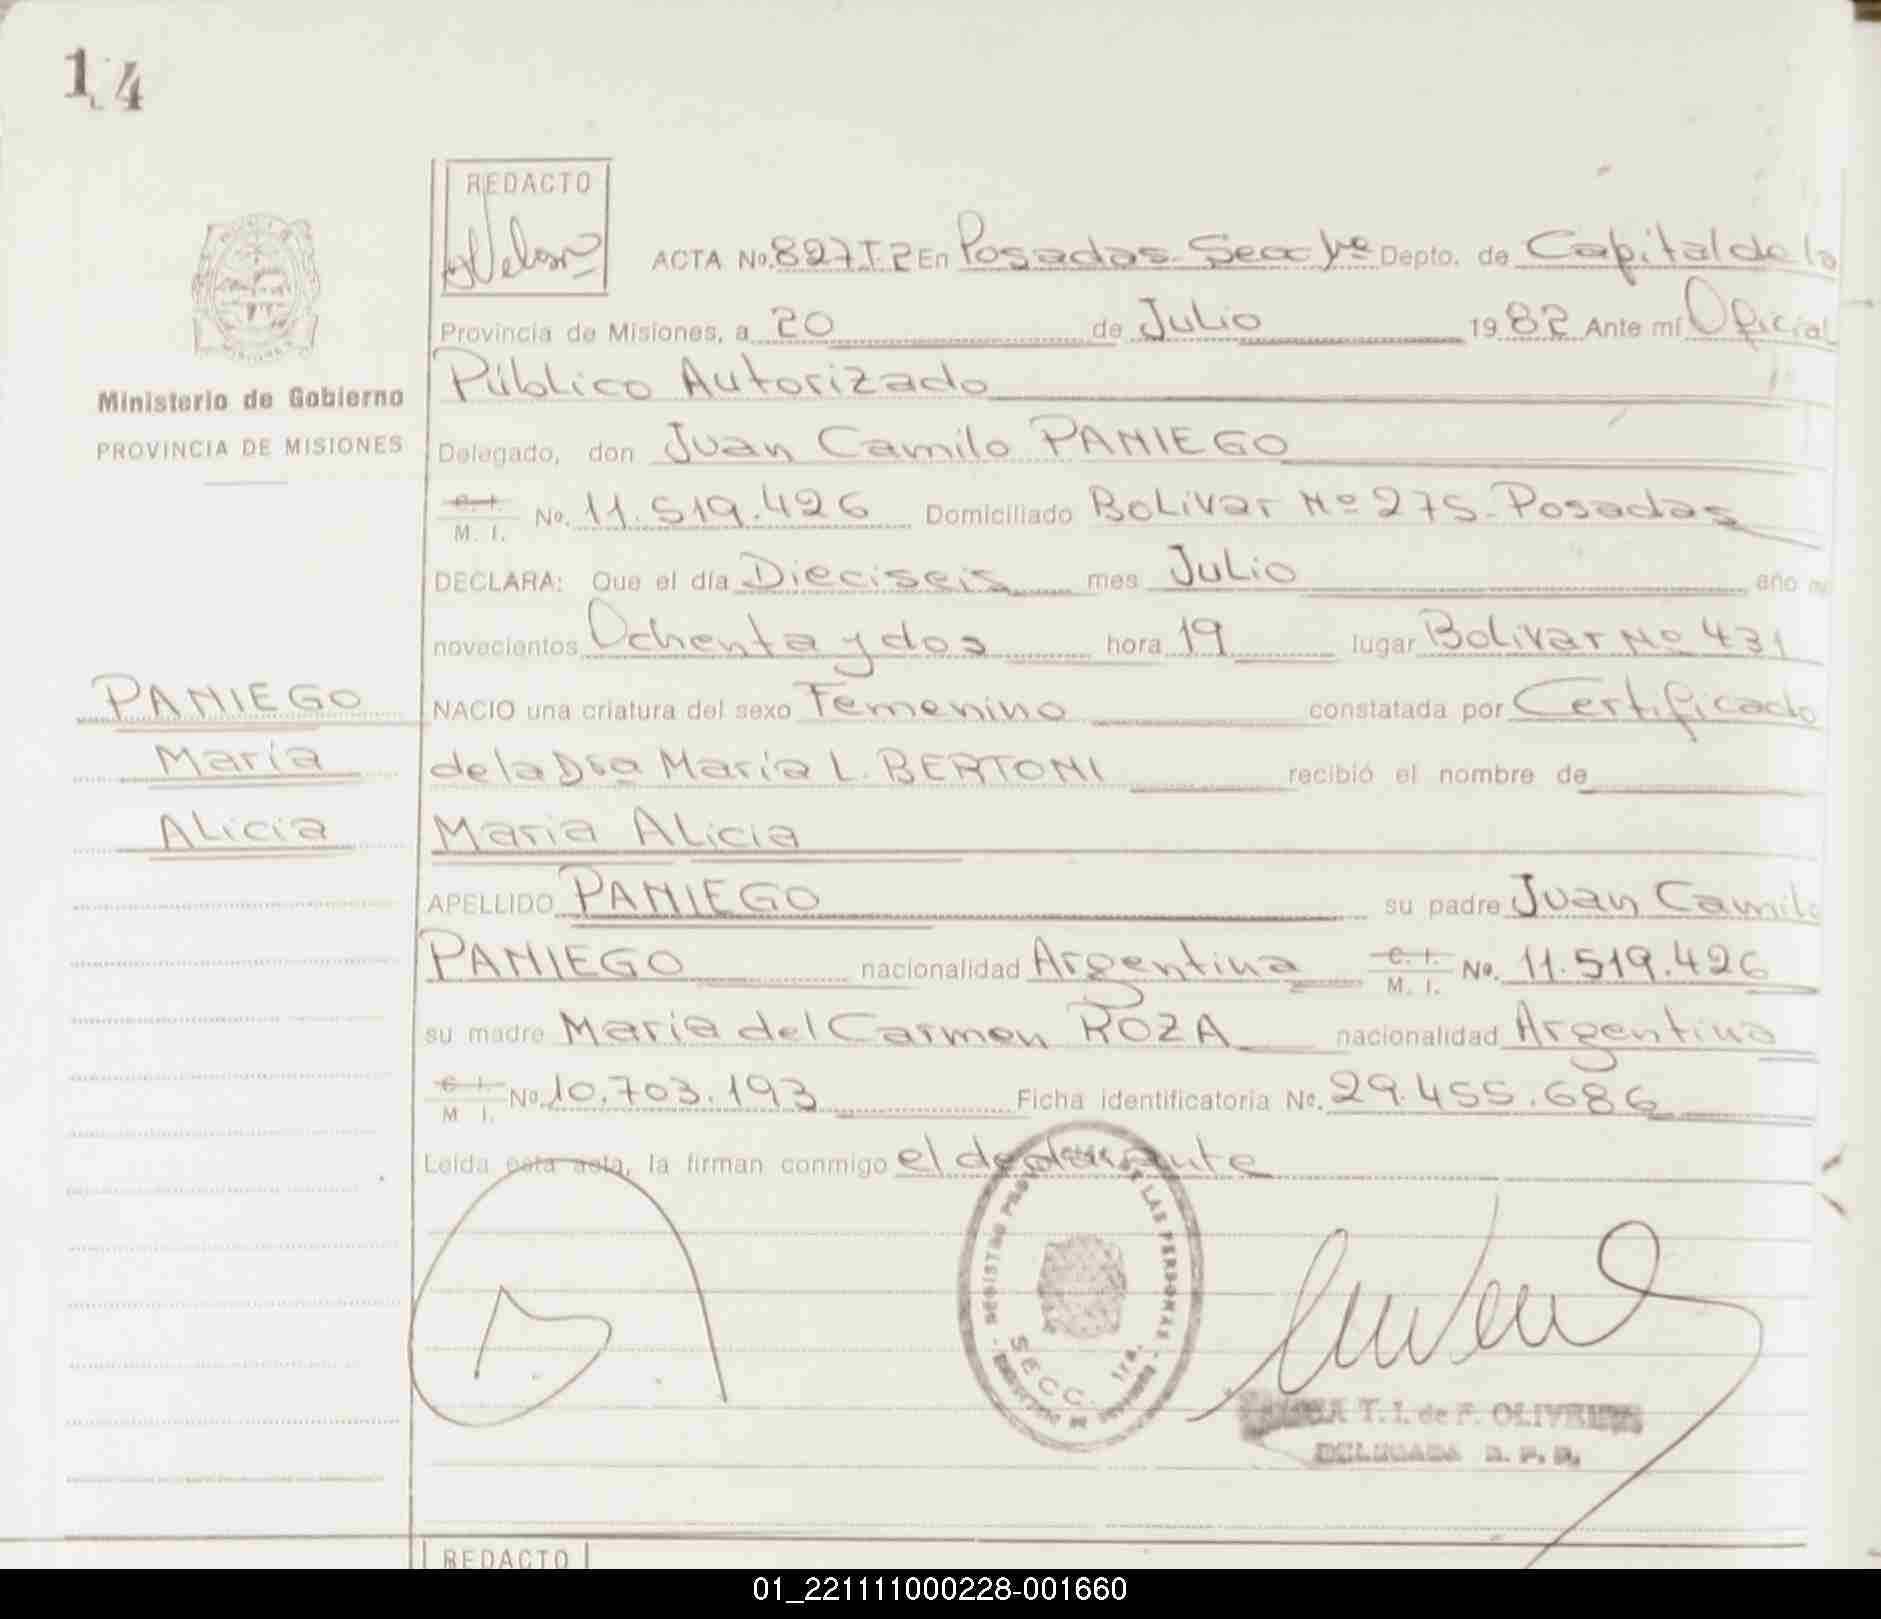 14
REDACTO
ACTA No. 827 T.2 En Posadas - Secc 1ra Depto. de Capital de la
Provincia de Misiones, a 20 de Julio 1982 Ante mí Oficial
Público Autorizado
Ministerio de Gobierno
PROVINCIA DE MISIONES
Delegado, don Juan Camilo PANIEGO
C. I.
M. I. No. 11.519.426 Domiciliado Bolivar Nº 275 - Posadas
DECLARA: Que el día Dieciseis mes Julio año mi
novecientos Ochenta y dos hora 19 lugar Bolivar Nº 431
PANIEGO
María
Alicia
NACIO una criatura del sexo Femenino constatada por Certificado
de la Dra María L. BERTONI recibió el nombre de
María Alicia
APELLIDO PANIEGO su padre Juan Camilo
PANIEGO nacionalidad Argentina C. I.
M. I. No. 11.519.426
su madre María del Carmen ROZA nacionalidad Argentina
C. I.
M I. No. 10.703.193 Ficha identificatoria No. 29.455.686
Leída esta acta, la firman conmigo el declarante
DE LAS PERSONAS
SECC. 1ra.
T. I. de F. OLIVEIRA
DELEGADA R. P. P.
REDACTO
01_221111000228-001660